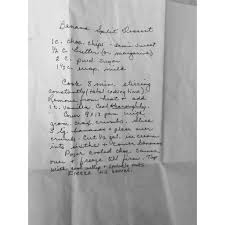 Banana Split Dessert
1 c. choc. chips - semi sweet
1/2 C. butter (or margarine)
2 C. pwd. sugar
1 1/2 c. evap. milk
Cook 8 min. stirring
constantly (total cooking time)
Remove from heat + add
1 t. vanilla. Cool thoroughly.
Cover 9 x 13 pan with
grah. crax crumbs. Slice
bananas + place over
crumbs. Cut 1/2 gal. ice cream
into slices + cover bananas
Pour cooled choc sauce
over + freeze til firm. Top
with cool whip + nuts
Freeze